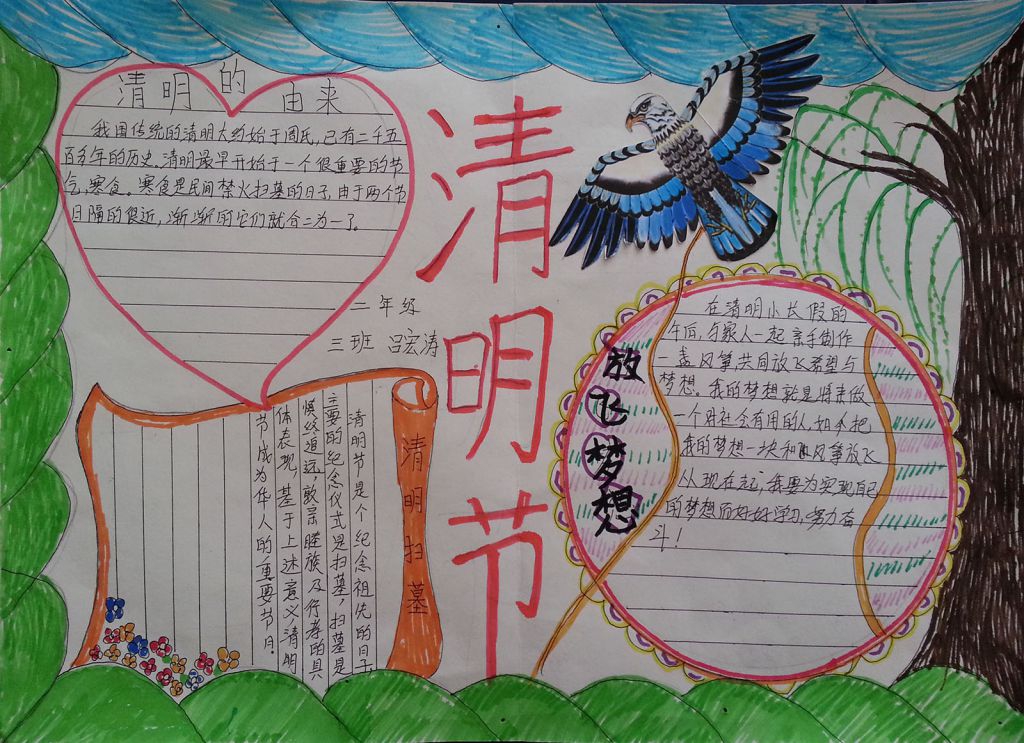 清明的由来
我国传统的清明大约始于周氏,已有二千五
百多年的历史.清明最早开始于一个很重要的节
气,寒食。寒食是民间禁火扫墓的日子,由于两个节
日隔的很近,渐渐的它们就合二为一了。
二年级
三班 吕宏涛
清明节
清明扫墓
清明节是个纪念祖先的日子
主要的纪念仪式是扫墓,扫墓是
慎终追远,敦亲睦族及行孝的具
体表现,基于上述意义清明
节成为华人的重要节日.
放飞梦想
在清明小长假的
午后,与家人一起亲手制作
一盏风筝,共同放飞希望与
梦想。我的梦想就是将来做
一个对社会有用的人,如今把
我的梦想一块和风筝放飞
从现在起,我要为实现自己
的梦想而好好学习,努力奋
斗!